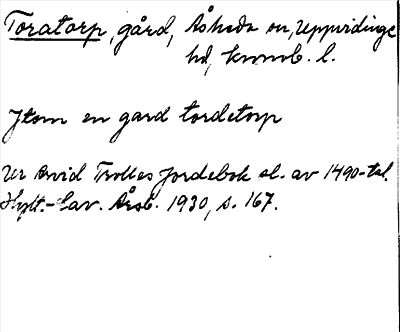 Toratorp, gård, Åsheda sn, Uppvidinge
hd, kronob. l.
Jtem en gard tordetorp
Ur Arvid Trolles Jordebok sl. av 1490-tal.
Hylt.-Cav. Årsb. 1930, s. 167.